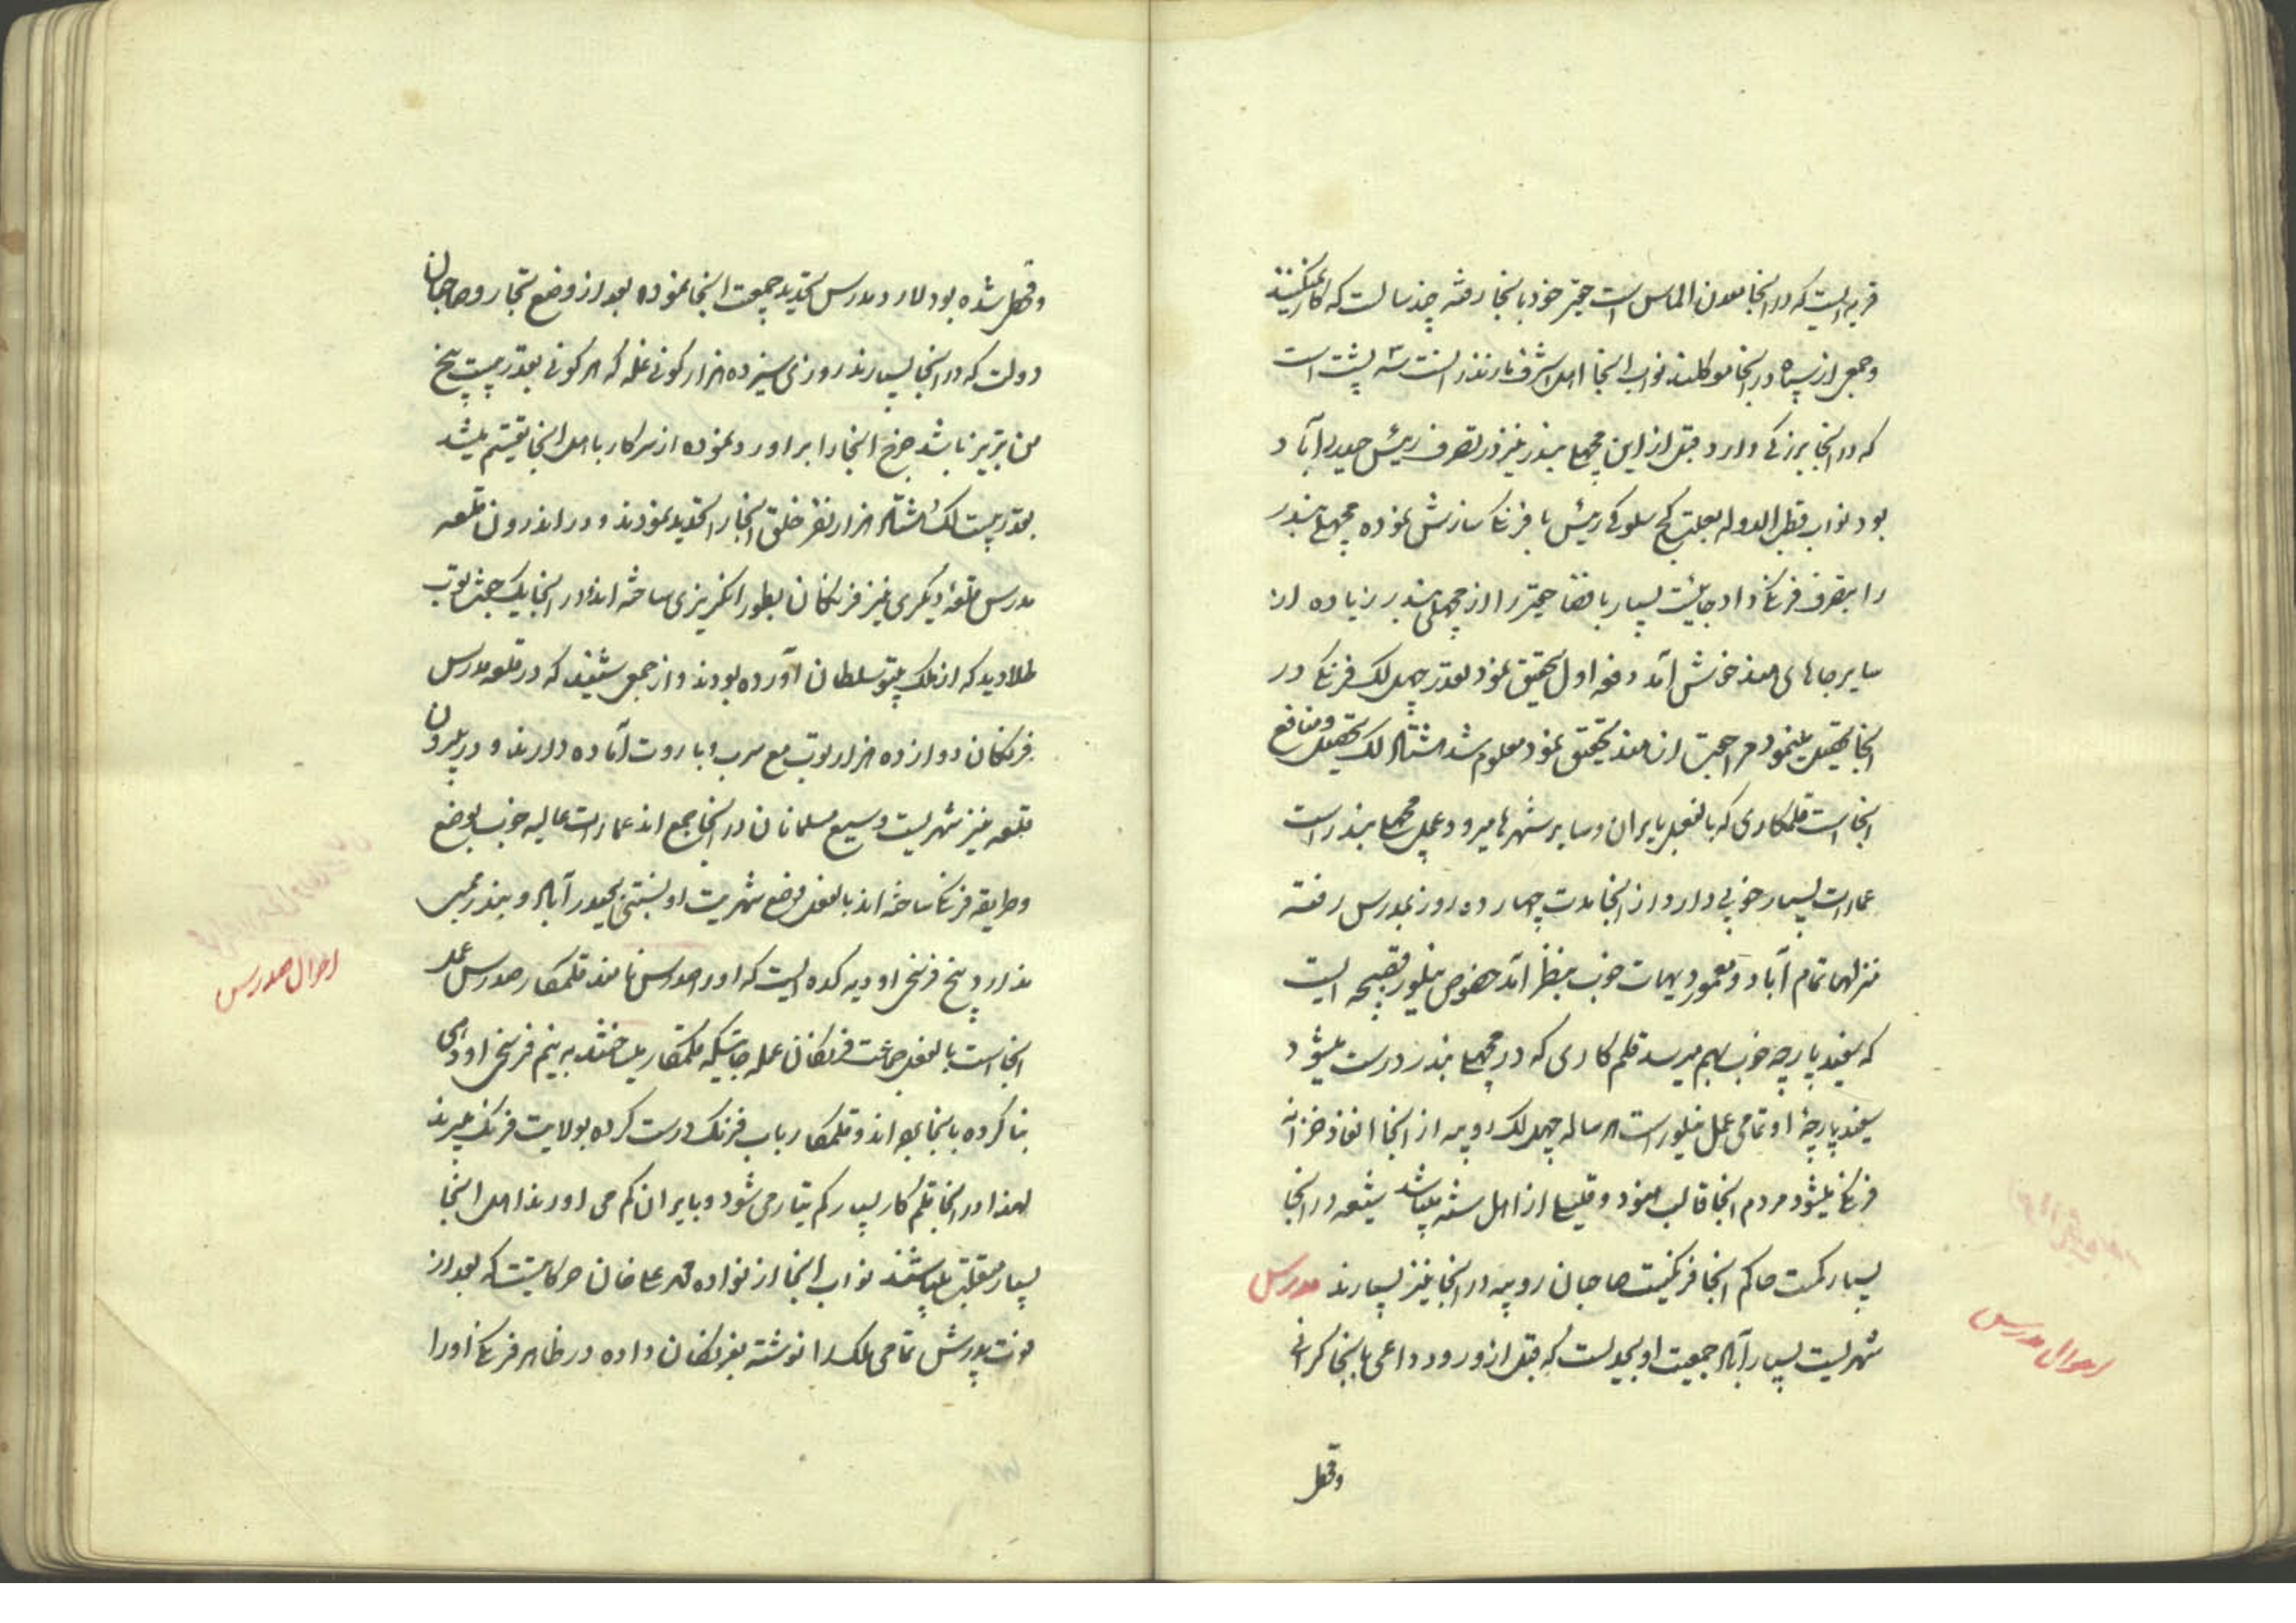 قریه ایست که در انجا معدن الماس است حقیر خود بانجا رفته چند سالست که کار نمیکنند
و جمعی از سپاه در انجا موکلند نواب انجا
که در انجا برزکی دارد قبل از این مچهلی بندر نیز در تصرف رئیس حیدرآباد
بود نواب قطب الدوله بعلت کج سلوکی رئیس با فرنک سازش نموده مچهلی بندر
را بتصرف فرنک داد جائیست بسیار باصفا حقیر را از مچهلی بندر زیاده از
سایر جاهای هند خوش آمد دفعه اول تحقیق نمود بقدر چهل لک فرنک در
انجا تحصیل مینمود مراجعت از هند تحقیق نمود معلوم شد هشتاد لک تحصیل و منافع
انجا است قلمکاری که بالفعل بایران و سایر شهرها میرود عمل مچهلی بندر است
عمارات بسیار خوبی دارد از انجا مدت چهارده روز بمدرس رفته
منزلها تمام آباد و معمور دیهات خوب بنظر آمد خصوص نیلور قصبچه ایست
که سفید پارچه خوب بهم میرسد قلمکاری که در مچهلی بندر درست میشود
سفید پارچهٔ او تمامی عمل نیلور است هر ساله چهل لک روپیه از انجا انفاذ خزانه
فرنک میشود مردم انجا غالب هنود و قلیلی از اهل سنه میباشد شیعه در انجا
بسیار کمست حاکم انجا فرنکیست صاحبان روپیه در انجا نیز بسیارند مدرس
شهریست بسیار آباد جمعیت او بحدیست که قبل از ورود داعی بانجا کرانی
احوال مدرس
وقحط
وقحط شده بود لارد مدرس تحدید جمعیت انجا نموده بعد از وضع تجار و صاحبان
دولت که در انجا بسیارند روزی سیزده هزار کونی غله که هر کونی بقدر بیست پنج
من تبریز باشد خرج انجا را براورد نموده از سرکار باهل انجا تقسیم میشد
بقدر بیست لک هشتاد هزار نفر خلق انجا را تحدید نمودند و در اندرون قلعه
مدرس قلعهٔ دیکری نیز فرنکان بطور انکریزی ساخته اند در انجا یک جفت توپ
طلا دید که از ملک تیپو سلطان آورده بودند و از جمعی شنیده که در قلعه مدرس
فرنکان دوازده هزار توپ مع سرب و باروت آماده دارند و در بیرون
قلعه نیز شهریست وسیع مسلمانان در انجا جمع اند عمارات عالیه خوب بوضع
و طریقه فرنک ساخته اند بالفعل وضع شهریت او نسبتی بحیدرآباد و بندر ممبی
ندارد پنج فرسخی او دیه کده ایست که او را صدرس نامند قلمکار صدرس عمل
انجا است بالفعل جماعت فرنکان عمله جاتیکه قلمکار میساختند به نیم فرسخی او دهی
بنا کرده بانجا برده اند و قلمکار باب فرنک درست کرده بولایت فرنک میبرند
لهذا در انجا قلم کار بسیار کم تیار می شود و بایران کم می اورند اهل انجا
بسیار متقلب میباشند نواب انجا از نواده محمد علی خان صرکاتیست که بعد از
فوت پدرش تمامی ملک را نوشته بفرنکان داده در ظاهر فرنک او را
احوال صدرس